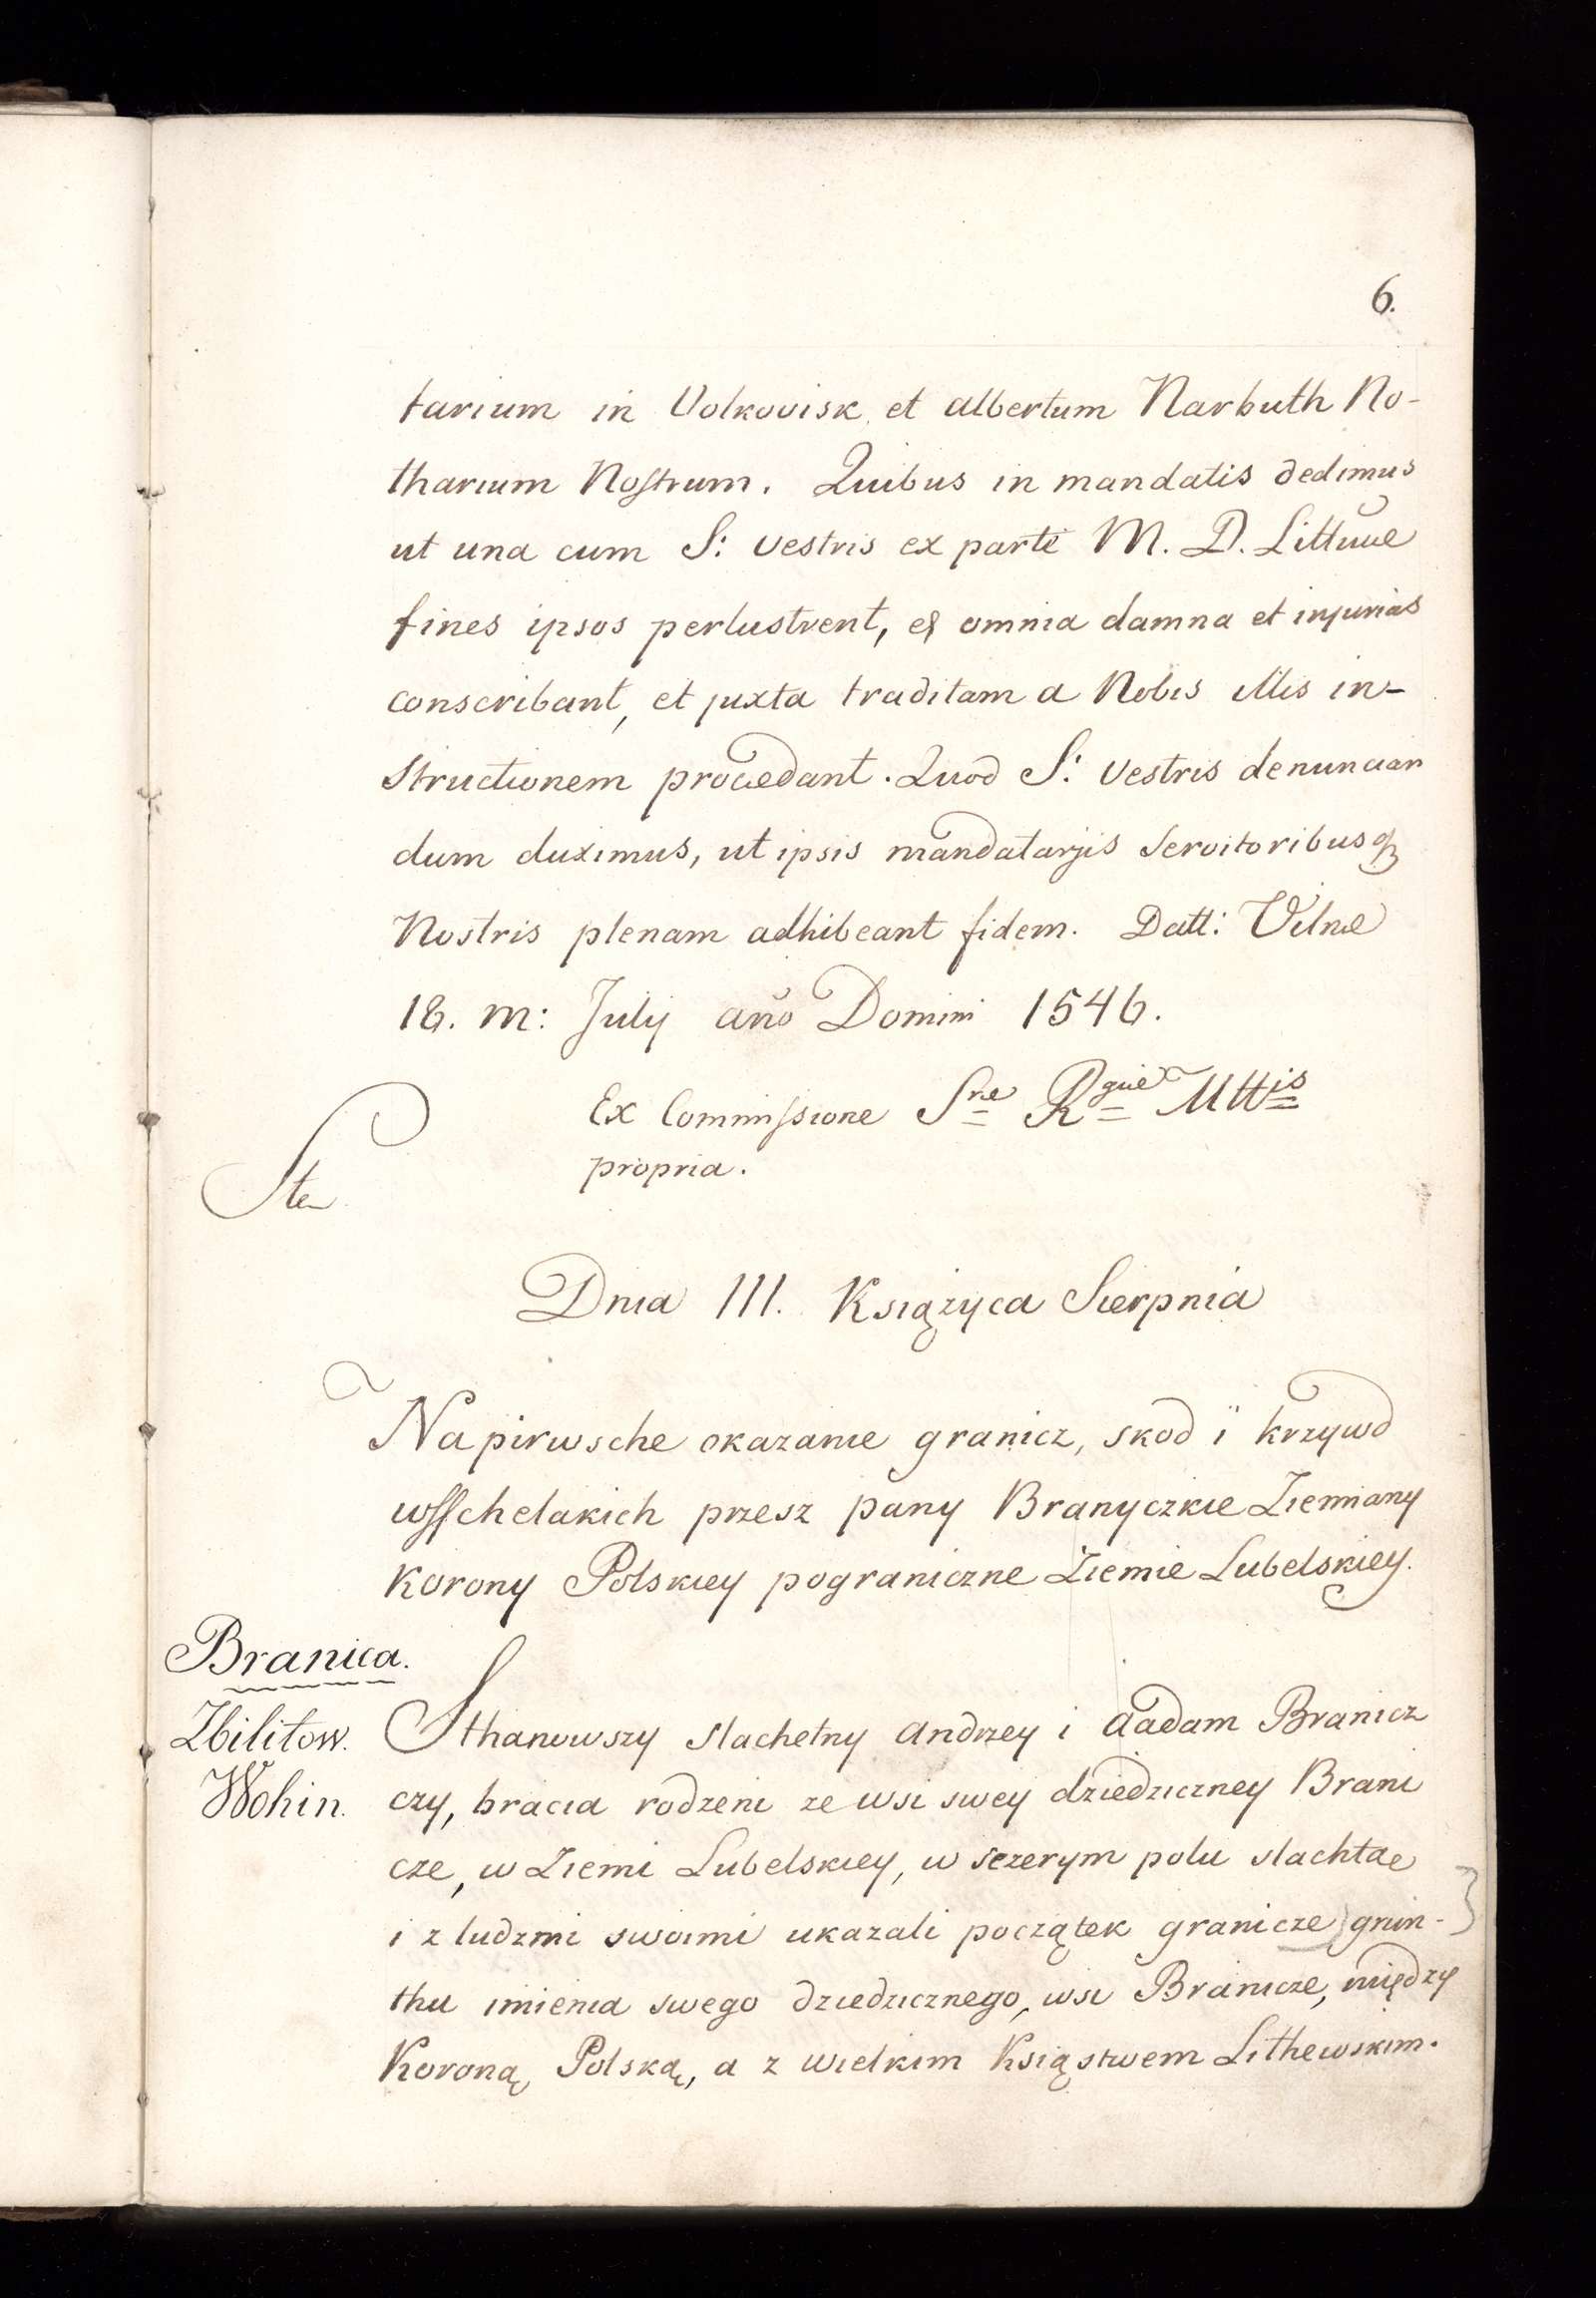 6.
tarium in Volkovisk et albertum Narbuth No-
tharium Nostrum. Quibus in mandatis dedimus
ut una cum S: vestris ex parte M. D. Littuae
fines ipsos perlustrent, et omnia damna et injurias
conscribant, et juxta traditam a Nobis illis in-
structionem procedant. Quod S: vestris denuncian
dum duximus, ut ipsis mandatarijs servitoribusq
Nostris plenam adhibeant fidem. Datt: Vilnae
18. m: July año Domini 1546.
Ex Commissione Sne Rgiae Mttis
propria.
Ste
Dnia III. Książyca Sierpnia
Napirwsche okazanie granicz, skod i krzywd
wsschelakich przesz pany Branyczkie Ziemiany
Korony Polskiey pograniczne Ziemie Lubelskiey.
Branica.
Zbilitow.
Wohin.
Sthanowszy slachetny Andrzey i Aadam Branicz
czy, bracia rodzeni ze wsi swey dziedziczney Brani
cze, w Ziemi Lubelskiey, w sczerym polu slachtae
i z ludzmi swoimi ukazali początek granicze grun-
thu imienia swego dziedzicznego, wsi Branicze, między
Koroną Polską, a z wielkim Ksiąstwem Lithewskim.